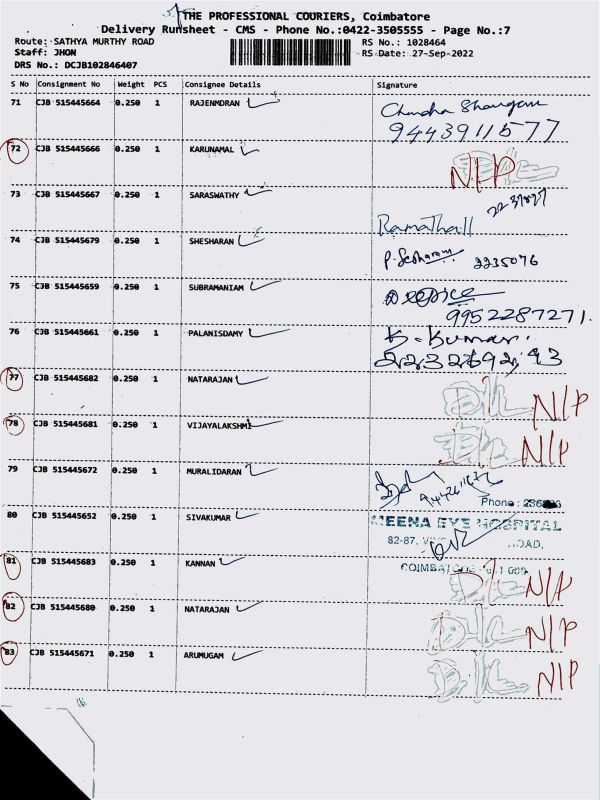 THE PROFESSIONAL COURIERS, Coimbatore
Delivery Runsheet - CMS - Phone No.:0422-3505555 - Page No.:7
Route: SATHYA MURTHY ROAD
RS No.: 1028464
Staff: JHON
RS Date: 27-Sep-2022
DRS No.: DCJB102846407
S No Consignment No Weight PCS Consignee Details Signature
71 CJB 515445664 0.250 1 RAJENMDRAN
9443911577
72 CJB 515445666 0.250 1 KARUNAMAL N/P
73 CJB 515445667 0.250 1 SARASWATHY
74 CJB 515445679 0.250 1 SHESHARAN 2235076
75 CJB 515445659 0.250 1 SUBRAMANIAM
9952287271.
76 CJB 515445661 0.250 1 PALANISDAMY K. Kumar
77 CJB 515445682 0.250 1 NATARAJAN D/L N/P
78 CJB 515445681 0.250 1 VIJAYALAKSHMI D/L N/P
79 CJB 515445672 0.250 1 MURALIDARAN
Phone :
80 CJB 515445652 0.250 1 SIVAKUMAR
MEENA EYE HOSPITAL
82-87,
81 CJB 515445683 0.250 1 KANNAN D/L N/P
82 CJB 515445680 0.250 1 NATARAJAN D/L N/P
83 CJB 515445671 0.250 1 ARUMUGAM D/L N/P